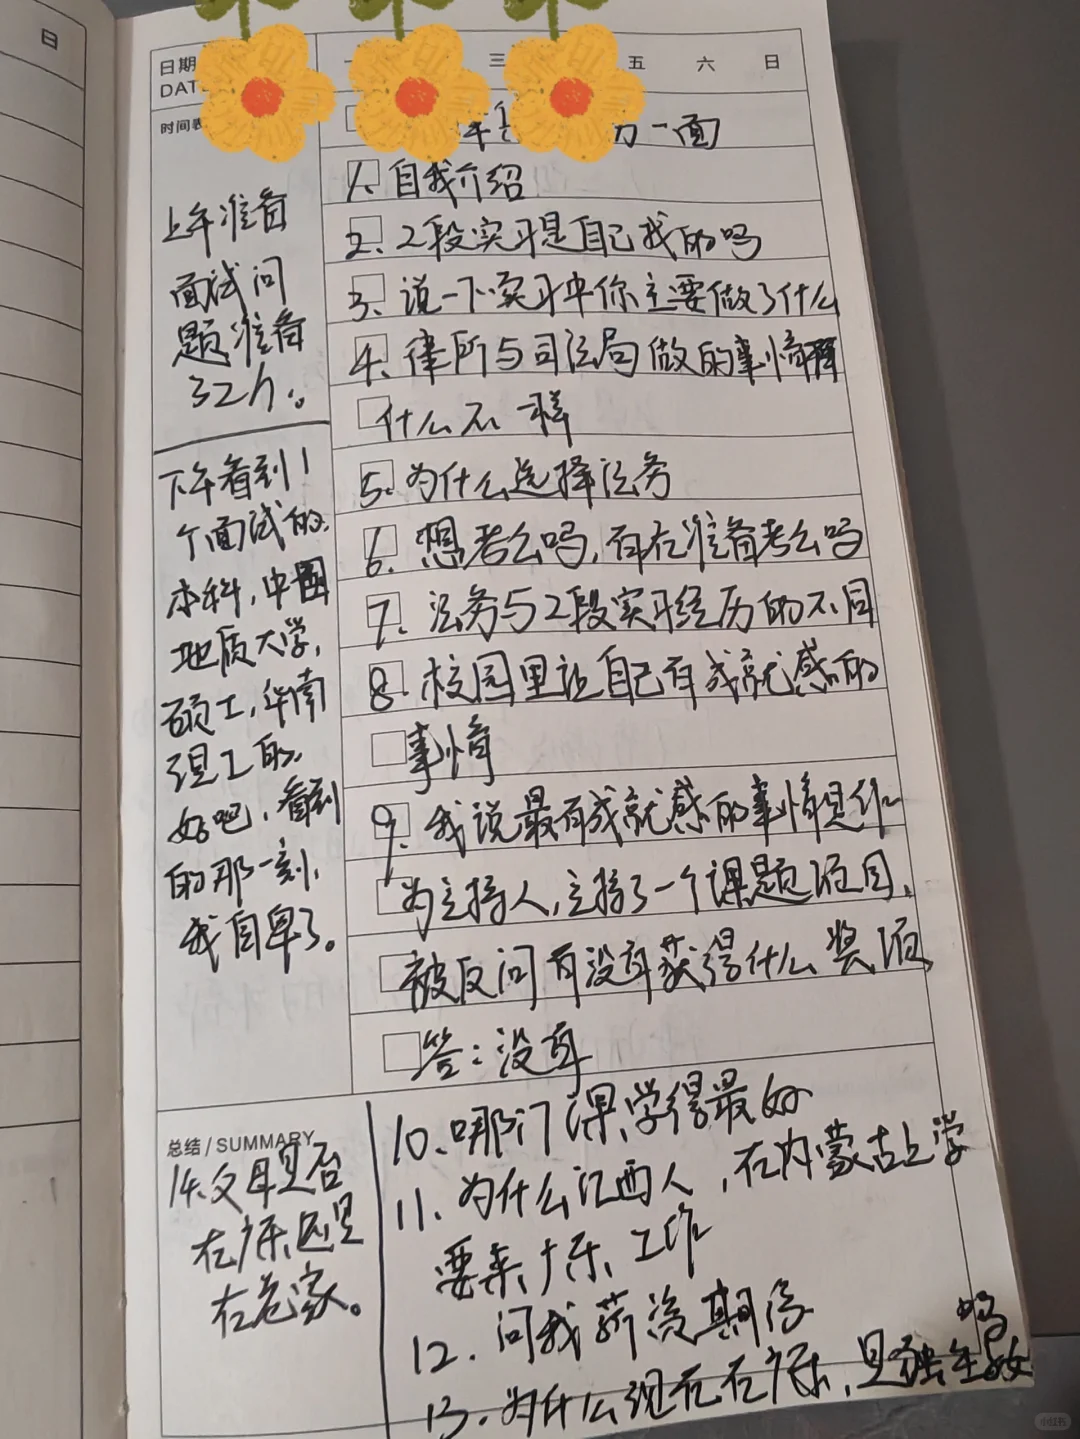 日
日期
DATE
三 五 六 日
时间表
一面
1. 自我介绍
2. 2段实习是自己找的吗
3. 说一下实习中你主要做了什么
4. 律所与司法局做的事情有
什么不一样
5. 为什么选择法务
6. 想考公吗,有在准备考公吗
7. 法务与2段实习经历的不同
8. 校园里让自己有成就感的
事情
9. 我说最有成就感的事情是作
为主持人,主持了一个课题项目,
被反问有没有获得什么奖项
答:没有
上午准备
面试问
题准备
32个。
下午看到1
个面试的,
本科,中国
地质大学,
硕士,华南
理工的,
好吧,看到
的那一刻,
我自卑了。
总结/SUMMARY
10. 哪门课学得最好
11. 为什么江西人,在内蒙古上学
要来广东工作
12. 问我薪资期待
13. 为什么现在在广东,是独生女
吗
14. 父母是否
在广东还是
在老家。
小红书